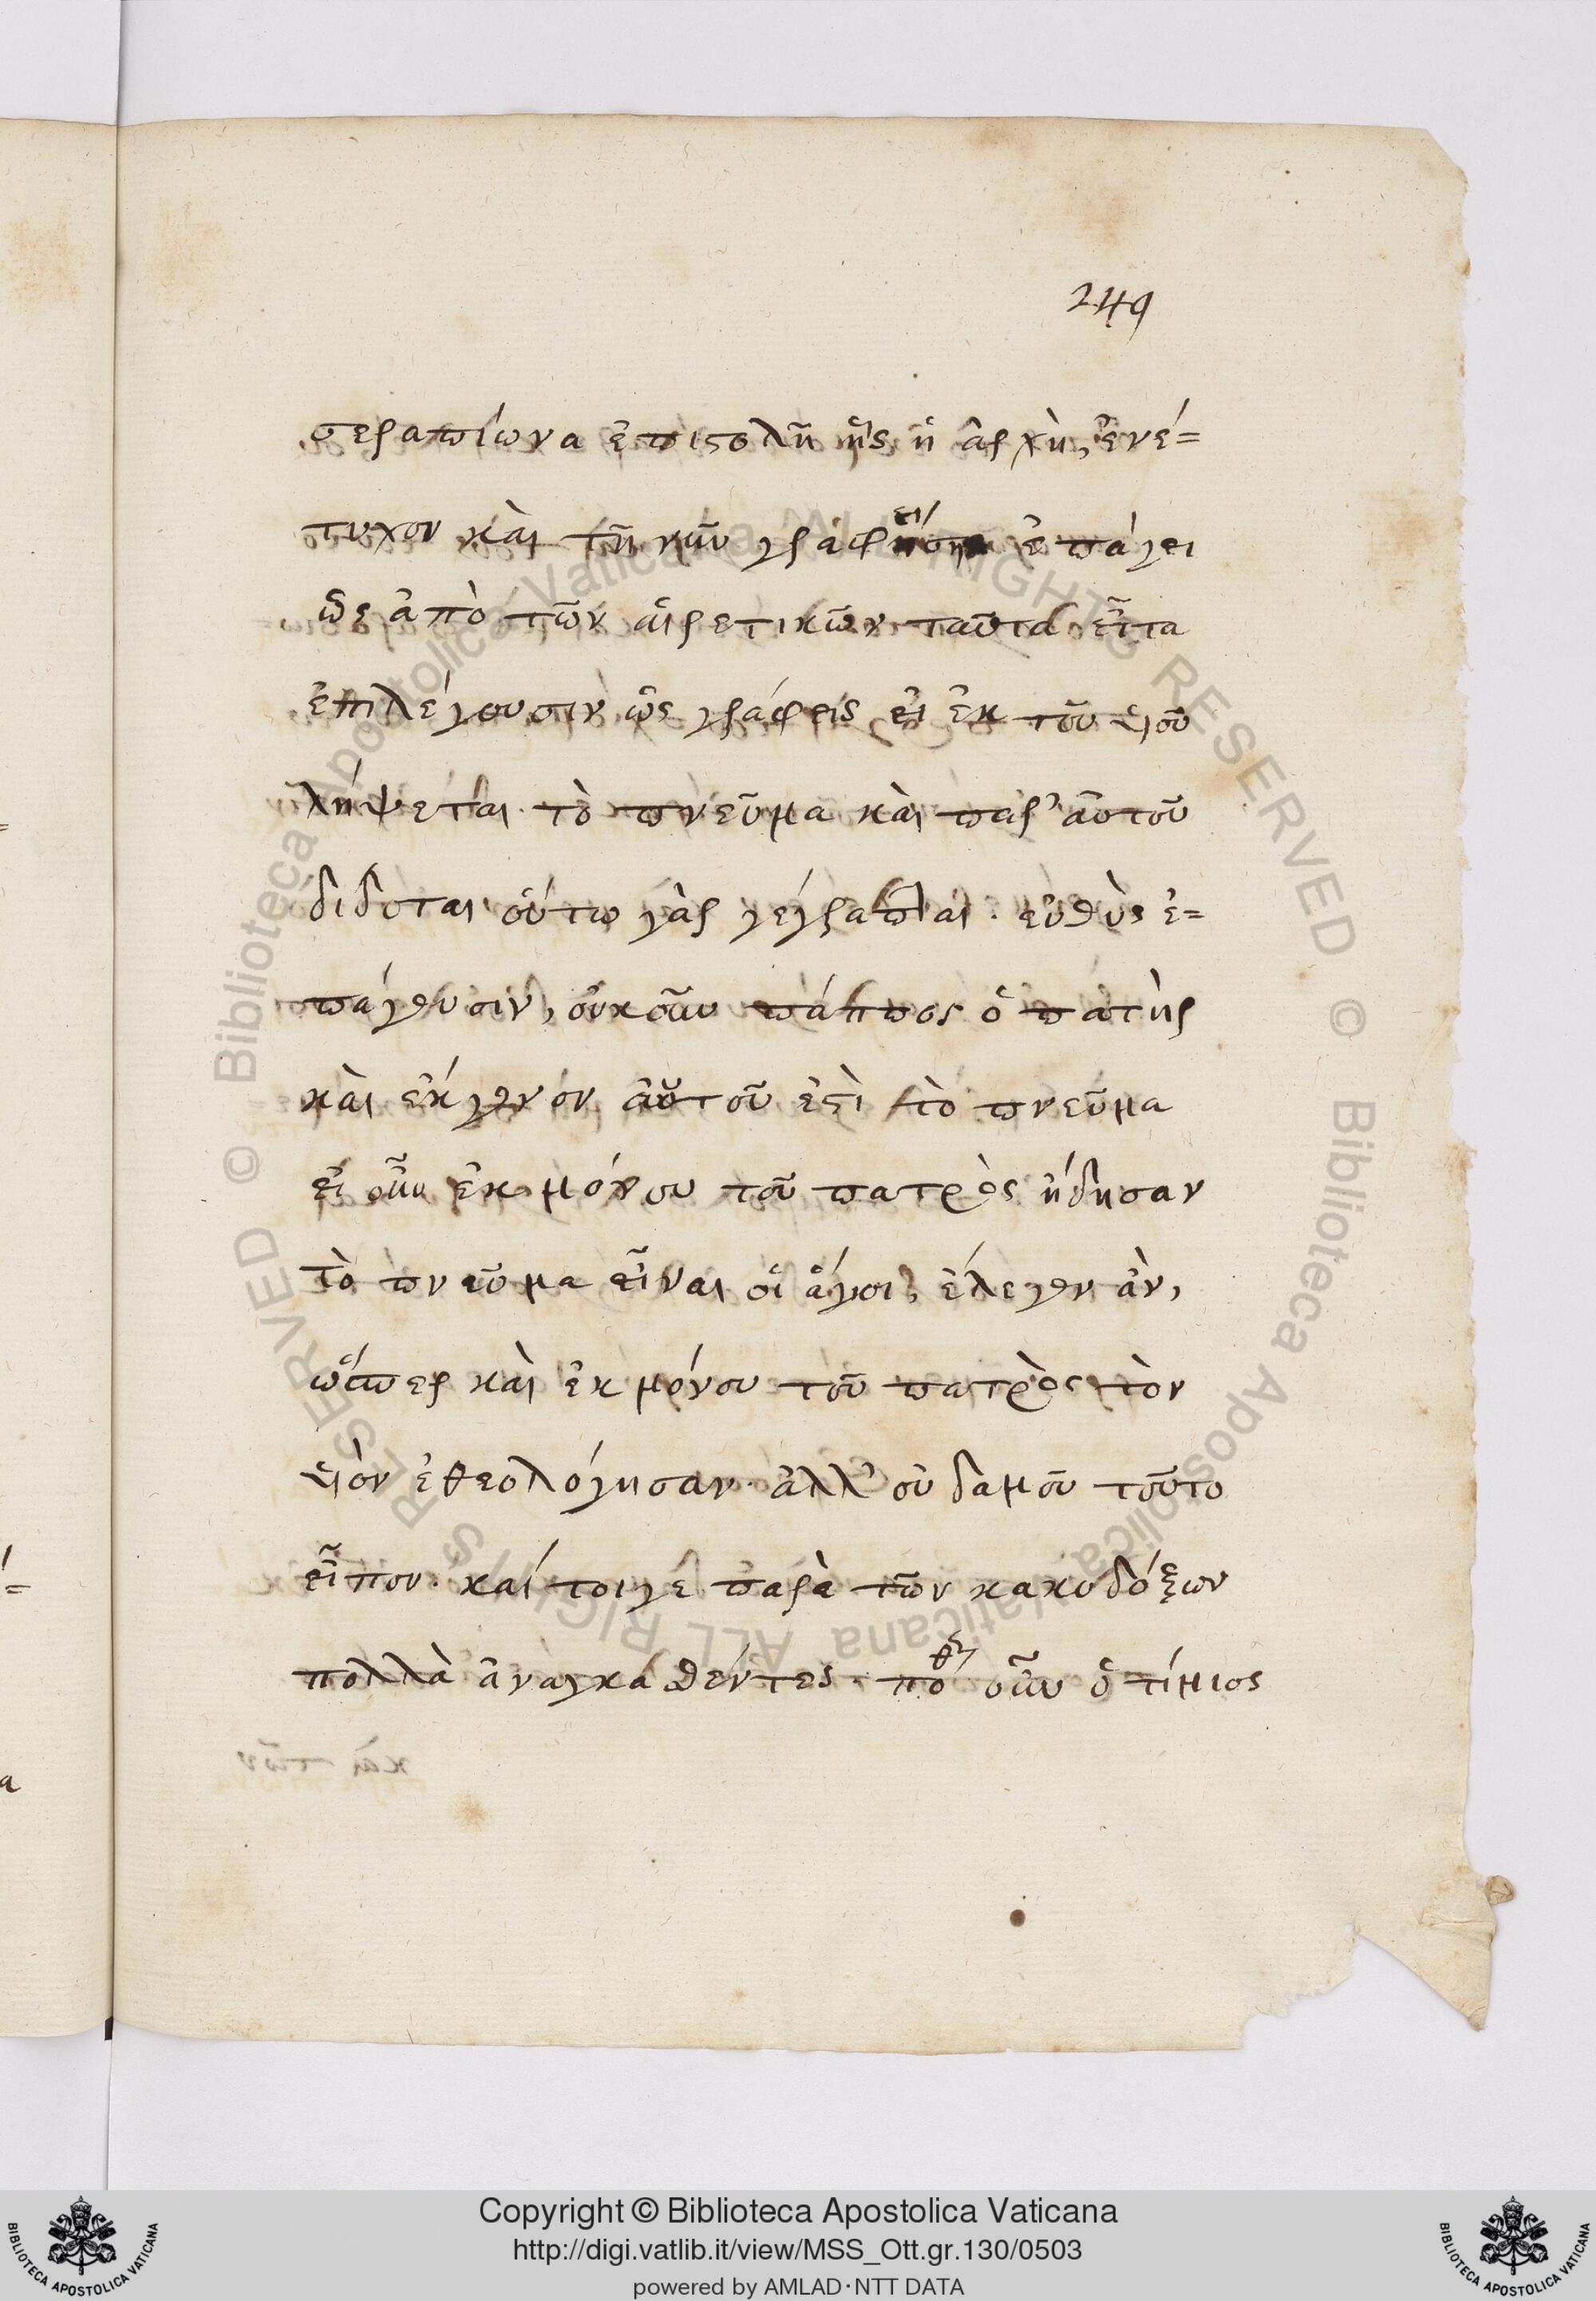 249
σεραπίωνα ἐπιστολῆ ἧς ἡ ἀρχὴ, ἐνέ=
τυχον καὶ τῆ νῦν γραφείση ἐπάγει
ὡς ἀπὸ τῶν αἱρετικῶν ταῦτα εἶτα
ἐπιλέγουσιν ὡς γράφεις εἰ ἐκ τοῦ υἱοῦ
λήψεται τὸ πνεῦμα καὶ παρ' αὐτοῦ
δίδοται οὕτω γὰρ γέγραπται. εὐθὺς ἐ=
πάγουσιν, οὐκοῦν πάππος ὁ πατὴρ
καὶ ἔκγονον αὐτοῦ ἐστὶ τὸ πνεῦμα
εἰ οὖν ἐκ μόνου τοῦ πατρὸς ἤδησαν
τὸ πνεῦμα εἶναι οἱ ἅγιοι, ἔλεγον ἀν,
ὥσπερ καὶ ἐκ μόνου τοῦ πατρὸς τὸν
υἱὸν ἐθεολόγησαν. ἀλλ' οὐδαμοῦ τοῦτο
εἶπον. καίτοιγε παρὰ τῶν κακοδόξων
πολλὰ ἀναγκασθέντες. πόθεν οὖν ὁ τίμιος
Copyright © Biblioteca Apostolica Vaticana
http://digi.vatlib.it/view/MSS_Ott.gr.130/0503
powered by AMLAD·NTT DATA
BIBLIOTECA APOSTOLICA VATICANA
BIBLIOTECA APOSTOLICA VATICANA
© Biblioteca Apostolica Vaticana ALL RIGHTS RESERVED
© Biblioteca Apostolica Vaticana ALL RIGHTS RESERVED